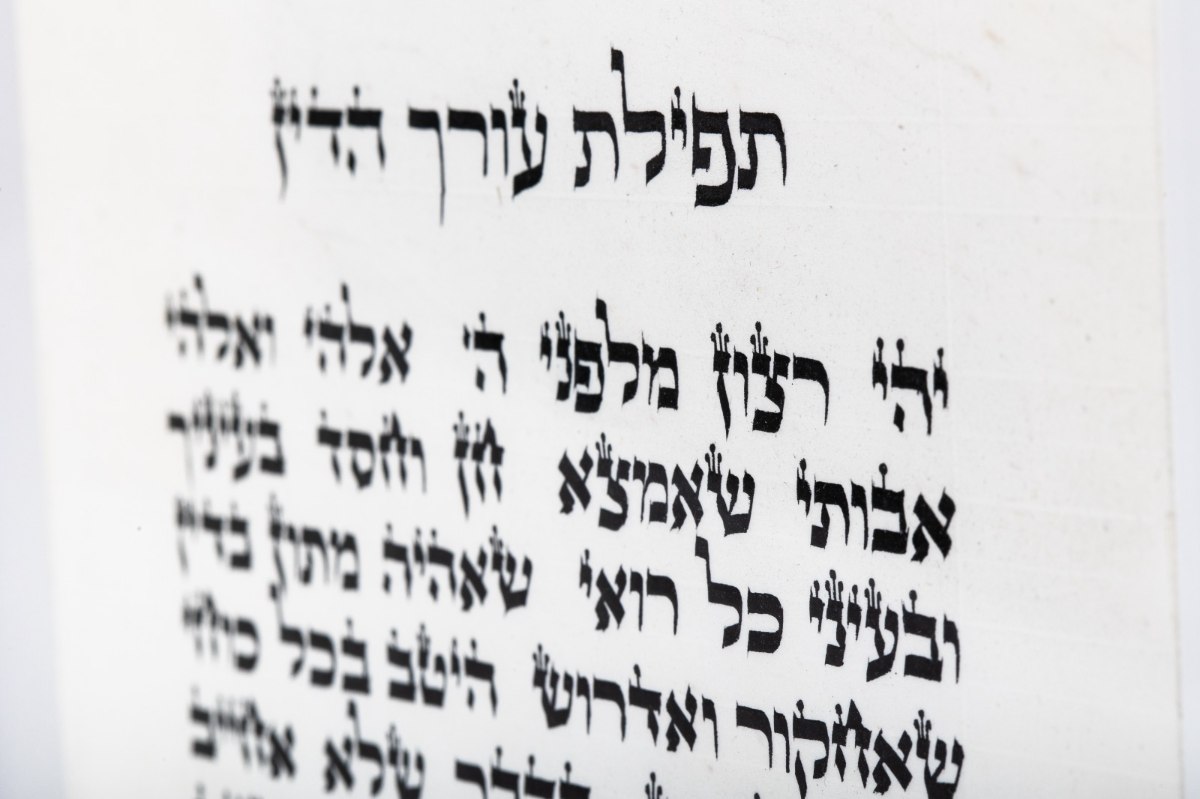 תפילת עורך הדין
יהי רצון מלפני ה' אלהי ואלהי
אבותי שאמצא חן וחסד בעיניך
ובעיני כל רואי שאהיה מתון בדין
שאחקור ואדרוש היטב בכל כוחי
שלא אחייב